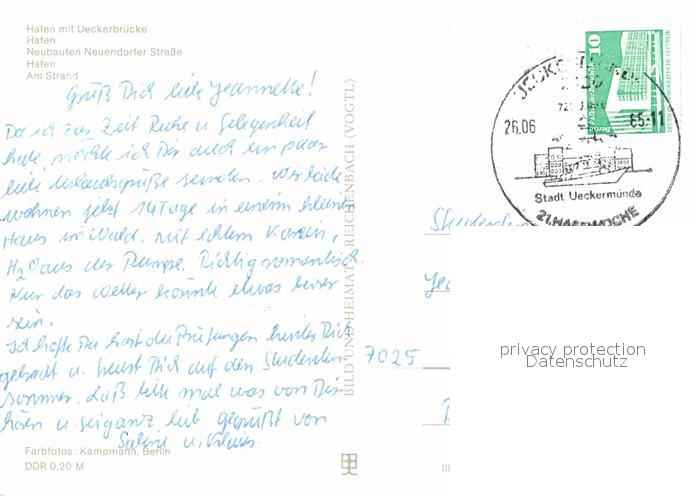 Hafen mit Ueckerbrücke
Hafen
Neubauten Neuendorfer Straße
Hafen
Am Strand
Grüß Dich liebe Jeannette!
Da ich zur Zeit Ruhe u. Gelegenheit
habe, möchte ich Dir auch ein paar
liebe Urlaubsgrüße senden. Wir beide
wohnen jetzt 14 Tage in einem kleinen
Haus im Wald. Mit echtem Kamin,
H2O aus der Pumpe. Richtig romantisch.
Nur das Wetter könnte etwas besser
sein.
Ich hoffe Du hast die Prüfungen hinter Dich
gebracht u. freust Dich auf den Studenten-
sommer. Laß bitte mal was von Dir
hören u. sei ganz lieb gegrüßt von
Farbfotos: Kampmann, Berlin
DDR 0,20 M
BILD UND HEIMAT REICHENBACH (VOGTL)
10
Berlin
26.06
85-11
Stadt Ueckermünde
21. HAFFWOCHE
7025
privacy protection
Datenschutz